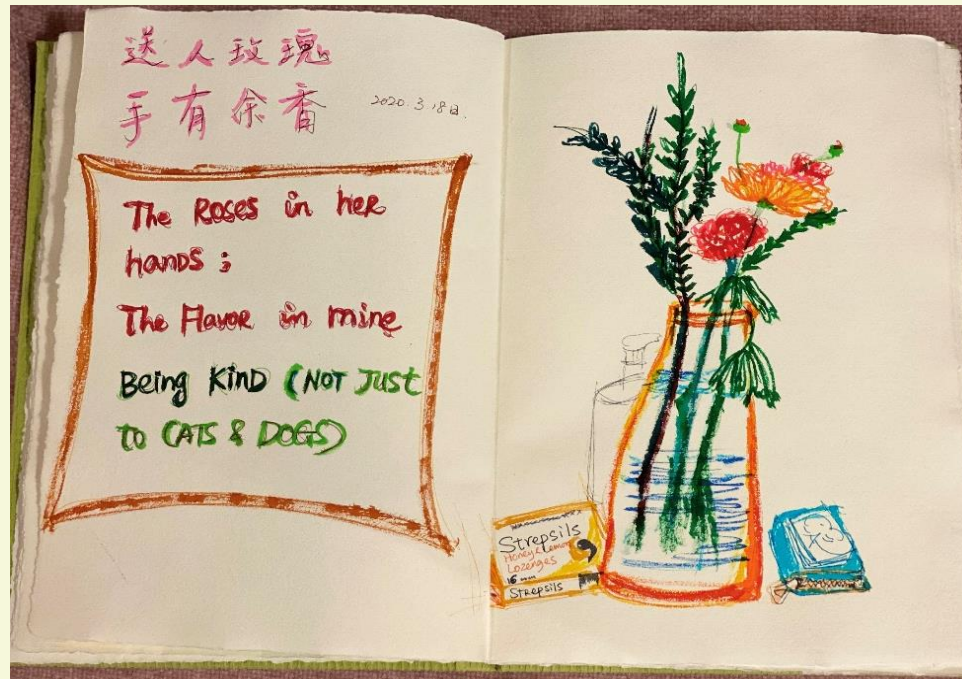 送人玫瑰
手有余香
2020.3.18日.
The Roses in her
hands;
The Flavor in mine
Being KinD (NOT Just
to CATS & DOGS)
Strepsils
Honey & Lemon
Lozenges
16
Strepsils